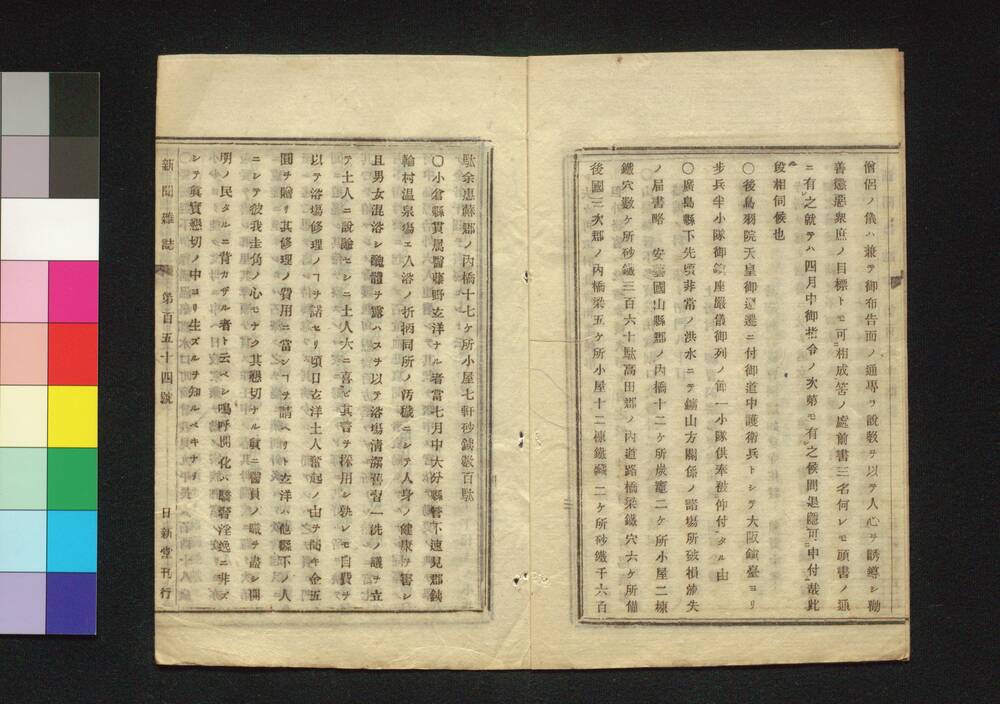 僧侶ノ儀ハ兼テ御布告面ノ通專ラ說敎ヲ以テ人心ヲ誘導シ勸
善懲惡衆庶ノ目標トモ可相成筈ノ處前書三名何レモ頭書ノ通
ニ有之就テハ四月中御指令ノ次第モ有之候間退隱可申付哉此
段相伺候也
○後鳥羽院天皇御還遷ニ付御道中護衛兵トシテ大阪鎭臺ヨリ
步兵半小隊御鎭座嚴儀御列ノ節一小隊供奉被仰付タル由
○廣島縣下先頃非常ノ洪水ニテ鑛山方關係ノ諸場所破損流失
ノ届書略 安藝國山縣郡ノ內橋十二ケ所炭竈二ケ所小屋二棟
鐵穴數ケ所砂鐵三百六十駄高田郡ノ內道路橋梁鐵穴六ケ所備
後國三次郡ノ內橋梁五ケ所小屋十二棟鐵藏二ケ所砂鐵千六百
駄余惠蘇郡ノ內橋十七ケ所小屋七軒砂鐵數百駄
○小倉縣貫属醫藤野玄洋ナル者當七月中大分縣管下速見郡鐵
輪村温泉塲エ入浴ノ折柄同所ノ汚穢ニシテ人身ノ健康ヲ害シ
且男女混浴シ醜體ヲ露ハスヲ以テ浴塲清潔舊習一洗ノ議ヲ立
テ土人ニ說諭セシニ土人大ニ喜ビ其言ヲ採用シ孰レモ自費ヲ
以テ浴塲修理ノヿヲ諾セリ頃日玄洋土人奮起ノ由ヲ聞キ金五
圓ヲ贈リ其修理ノ費用ニ當ンヿヲ請ヘリト玄洋ハ他縣下ノ人
ニシテ彼我圭角ノ心モナク其懇切ナル眞ニ醫員ノ職ヲ盡シ開
明ノ民タルニ背カザル者ト云ベシ嗚呼開化ハ驕奢淫逸ニ非ズ
シテ眞實懇切ノ中ヨリ生ズルヲ知ルベキナリ
新聞雜誌 第百五十四號 日新堂刊行